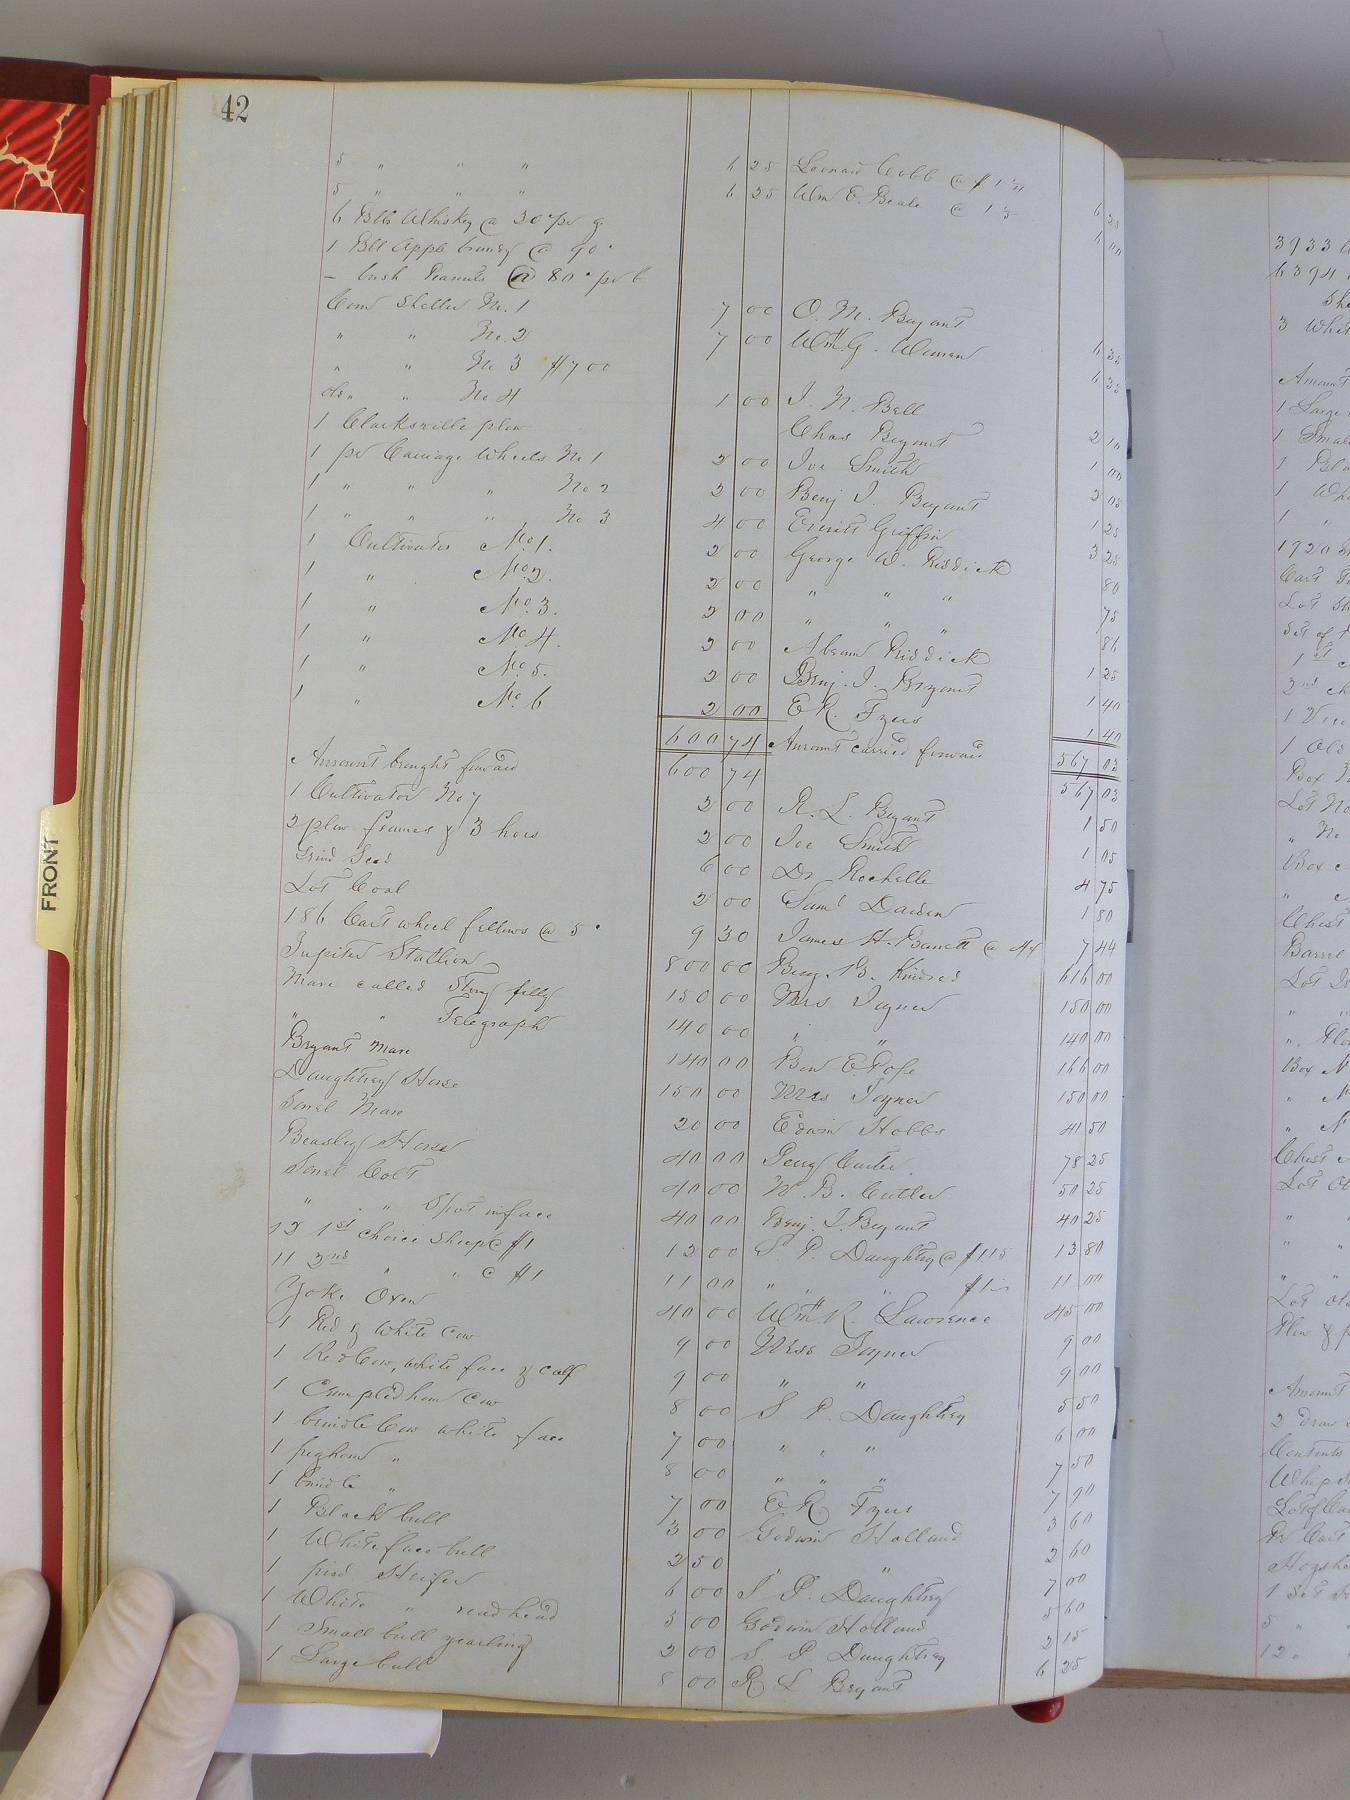 42
5 " " " 6 25 Leonard Cobb @ $1 25 6 25
5 " " " 6 25 Wm E. Beale @ 1 6 00
6 Bbls Whiskey @ 30 c pr g
1 Bbl Apple brandy @ 90 c
– bush Peanuts @ 80 c pr b
Corn Sheller No. 1 7 00 O. M. Bryant 6 35
" " No. 2 7 00 Wm G. Woman 6 35
" " No 3 $7 00
old " " No 4 1 00 J. N. Bell 2 10
1 Clarksville plow Chas Bryant 1 00
1 pr Carriage Wheels No 1 2 00 Joe Smith 2 05
1 " " " No 2 2 00 Benj J. Bryant 1 25
1 " " " No 3 4 00 Everitt Griffin 3 25
1 Cultivator No. 1. 2 00 George W. Riddick 80
1 " No. 2. 2 00 " " " 75
1 " No. 3. 2 00 " " " 86
1 " No. 4. 2 00 Abram Riddick 1 25
1 " No. 5. 2 00 Benj. J. Bryant 1 40
1 " No. 6 2 00 E R. Fyers 1 40
600 74 Amount carried forward 567 03
Amount brought forward 600 74 567 03
1 Cultivator No 7 2 00 R. L. Bryant 1 50
2 plow frames & 3 hoes 2 00 Joe Smith 1 05
Grind 6 00 Dr Rochelle 4 75
Lot Coal 2 00 Saml Darden 1 80
186 Cart wheel fellows @ 5 c 9 30 James H. Barrett @ 4 c 7 44
Jupiter Stallion 800 00 Benj. B. Kindred 616 00
Mare called Story filly 150 00 Mrs Joyner 150 00
" " Telegraph 140 00 " " 140 00
Bryant Mare 140 00 Ben E Pope 166 00
Daughtrey Horse 150 00 Mrs Joyner 150 00
Sorrel Mare 20 00 Edwin Hobbs 41 50
Beasley Horse 40 00 Jerry Carter. 78 25
Sorrel Colt 40 00 W. B. Cutler 50 25
" " Spot in face 40 00 Benj. J. Bryant 40 25
12 1st choice Sheep @ $1 12 00 S. P. Daughtry @ $1.15 13 80
11 2nd " " @ $1 11 00 " " " 11 00
Yoke Oxen 40 00 Wm R. Lawrence 45 00
1 Red & White Cow 9 00 Mrs Joyner 9 00
1 Red Cow, white face & calf 9 00 " " 9 00
1 Crumpled horn Cow 8 00 S P. Daughtrey 5 50
1 brindle Cow white face 7 00 " " " 6 00
1 " 8 00 " " " 7 50
1 brindle " 7 00 E R Fyers 7 90
1 Black bull 3 00 Godwin Holland 3 60
1 White face bull 2 50 " " 2 60
1 pied Heifer 6 00 S P. Daughtrey 7 00
1 White " read head 5 00 Godwin Holland 5 60
1 Small bull yearling 2 00 S P Daughtrey 2 15
1 Large bull 8 00 R L Bryant 6 25
FRONT
3933
6394
3 Whi
Amount
1 Large
1 Smal
1 Bla
1 Whi
1 "
1920
Cart
Lot
Set of
1st
2nd
1
1 Old
Box
Lot No
" No
Box
"
Chest
Barrel
Lot
" "
"
Box N
" N
" N
Chest
Lot
"
" "
" "
Lot old
Plow &
Amount
2 Draw
Contents
Whip
Lot of
Pr Cart
Hogshe
1 Set
5 "
12 "